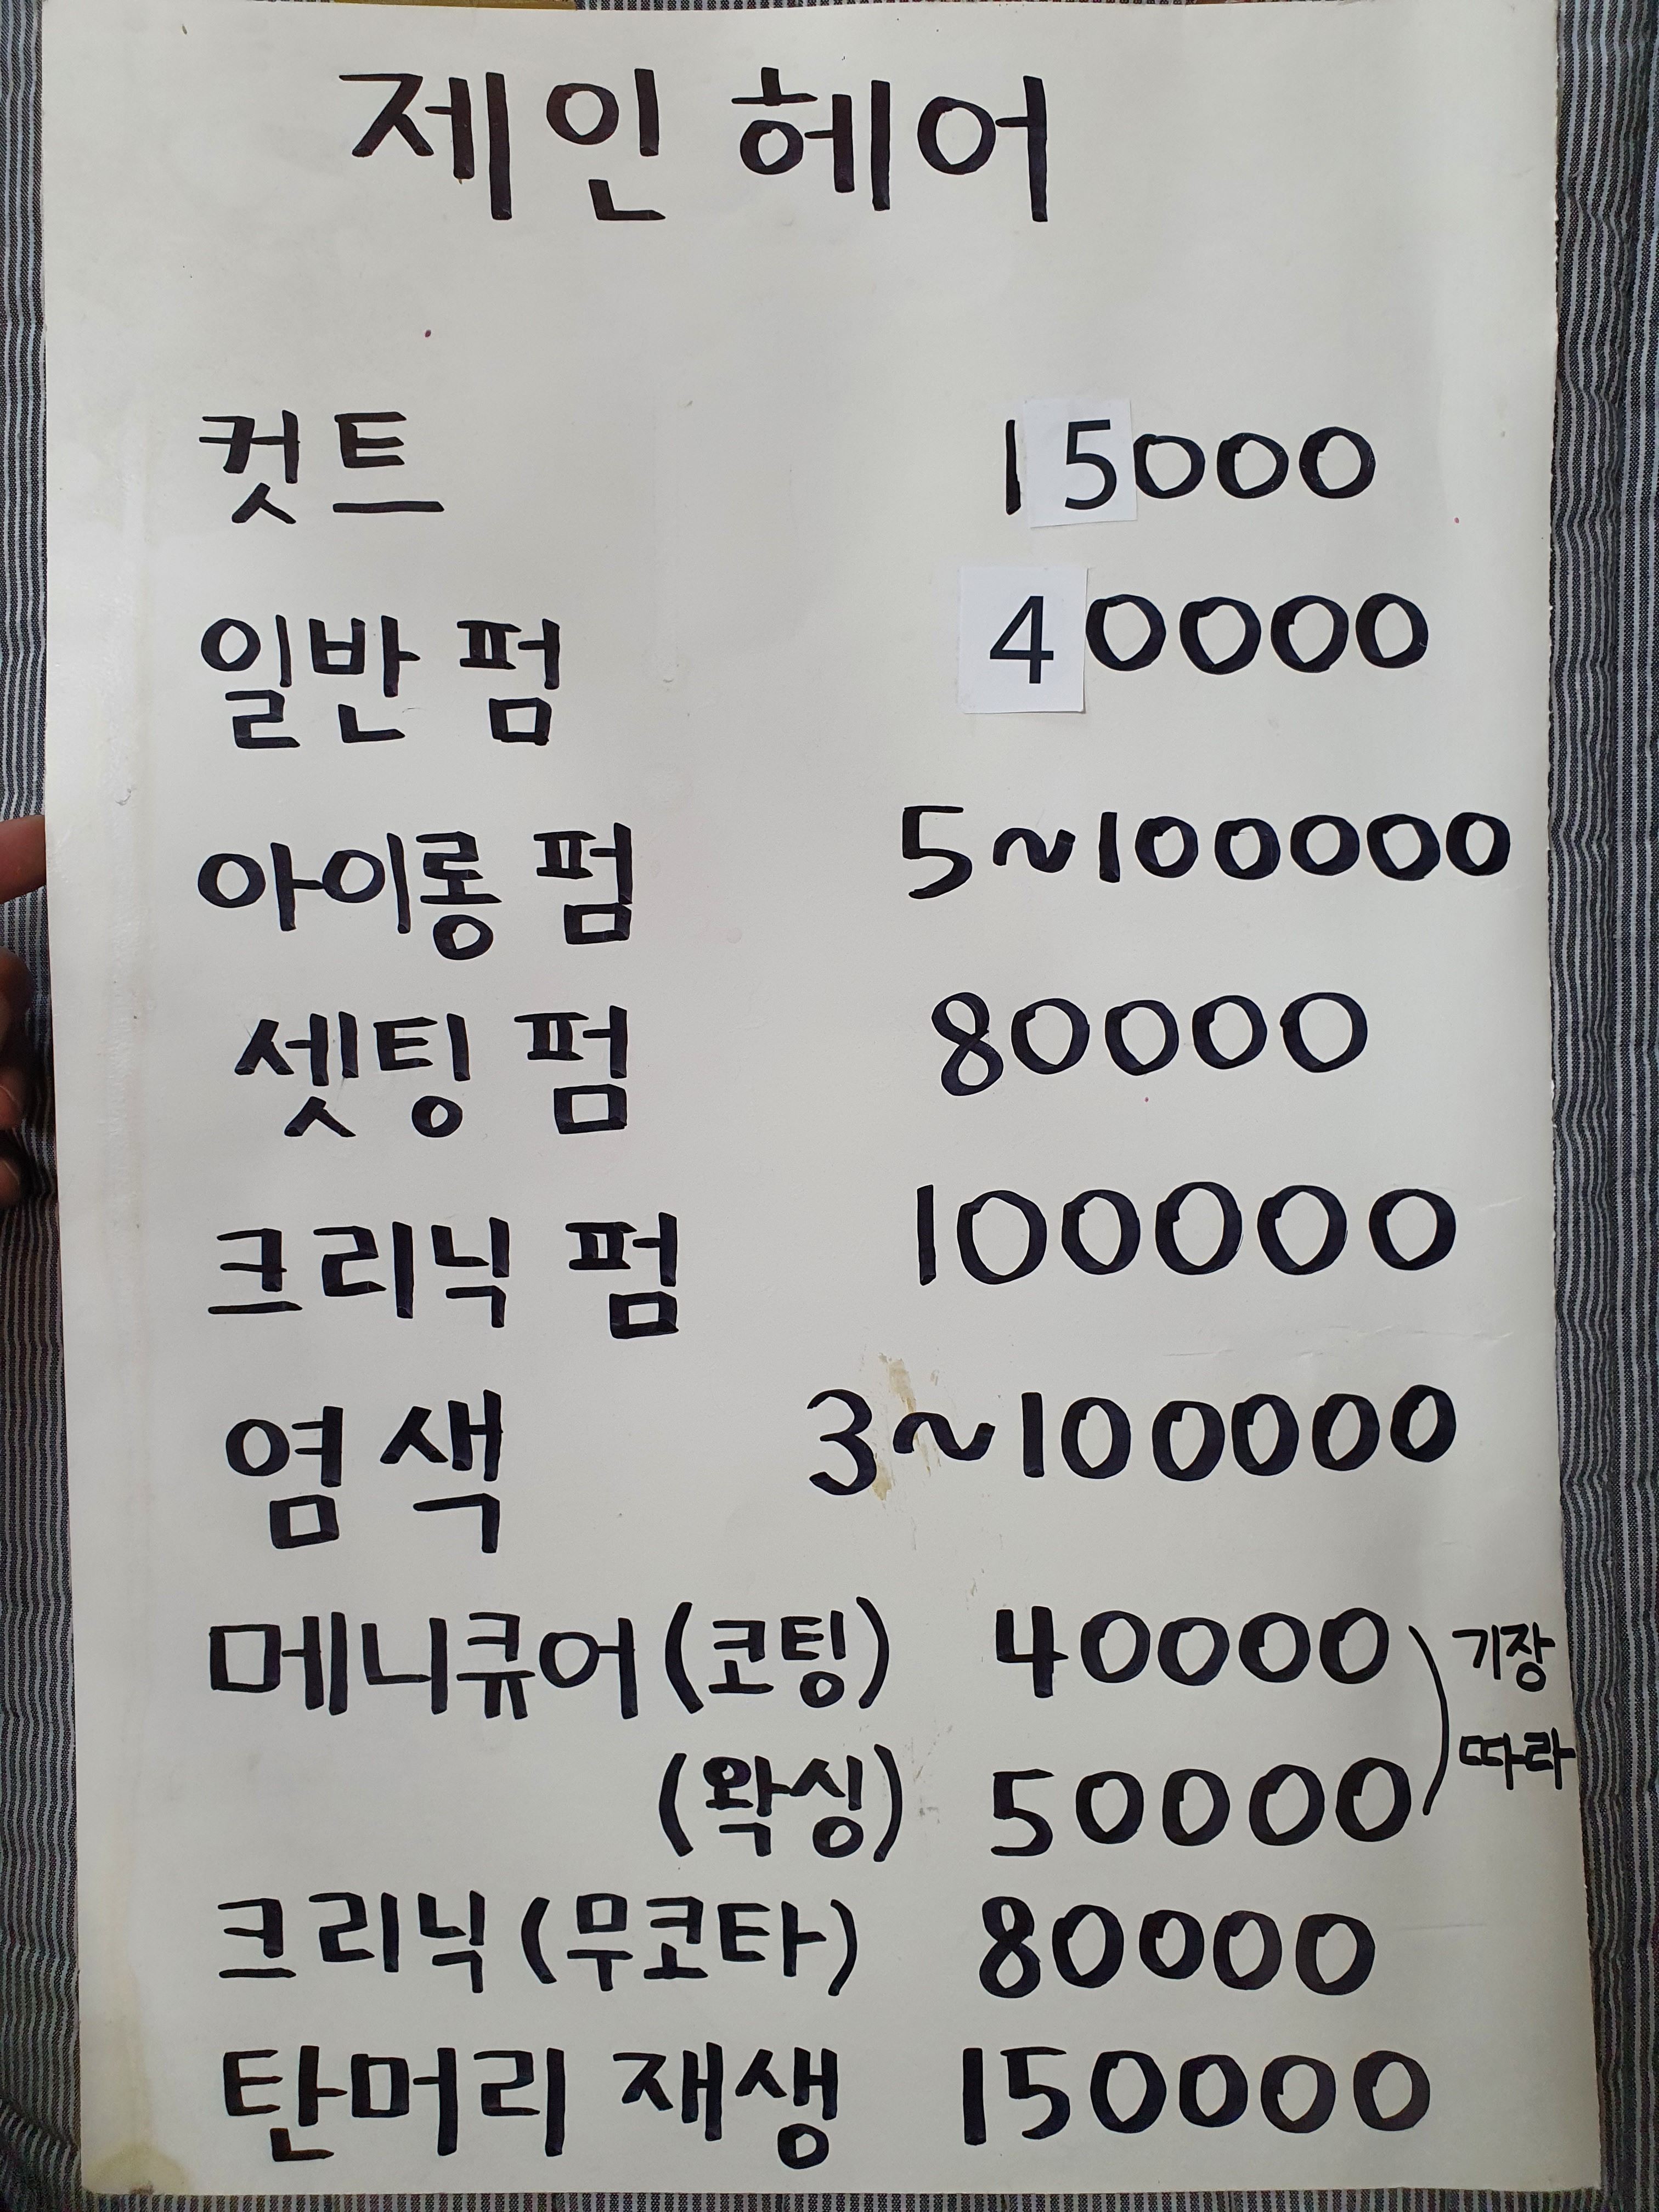 제인 헤어
컷트 15000
일반 펌 40000
아이롱 펌 5~100000
셋팅 펌 80000
크리닉 펌 100000
염색 3~100000
메니큐어 (코팅) 40000 기장
(왁싱) 50000 따라
크리닉 (무코타) 80000
탄머리 재생 150000